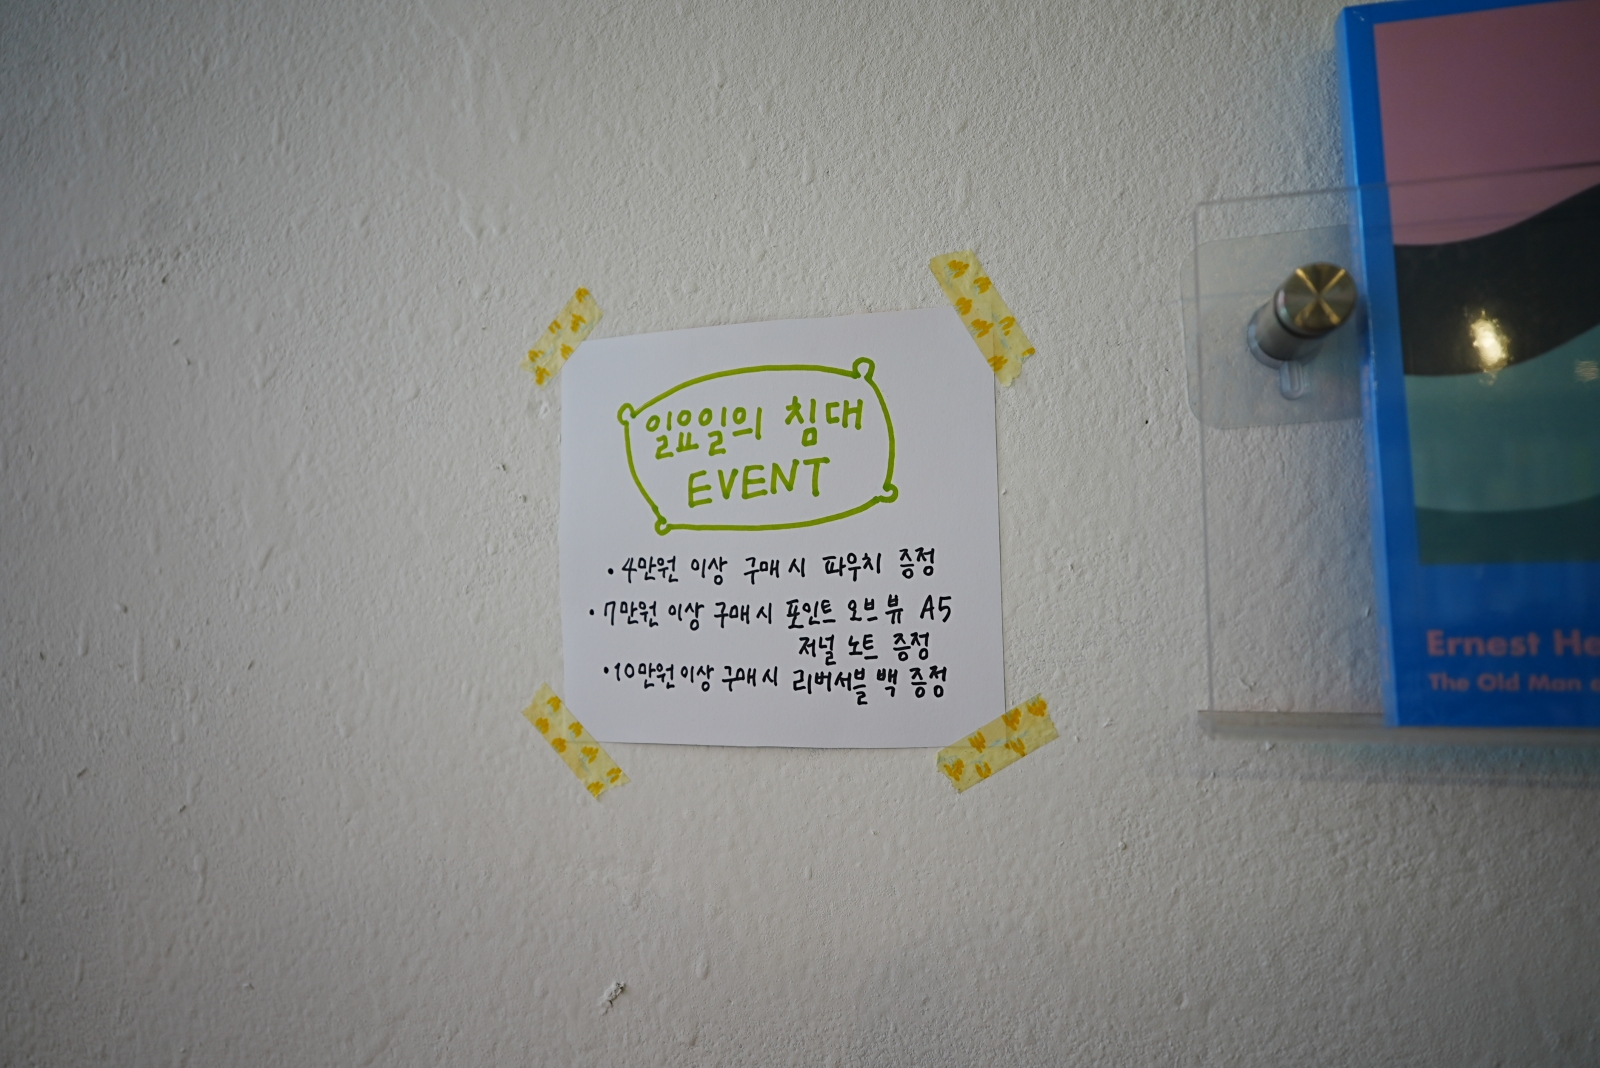 일요일의 침대
EVENT
• 4만원 이상 구매 시 파우치 증정
• 7만원 이상 구매 시 포인트 오브 뷰 A5
저널 노트 증정
• 10만원 이상 구매 시 리버서블 백 증정
Ernest He
The Old Man